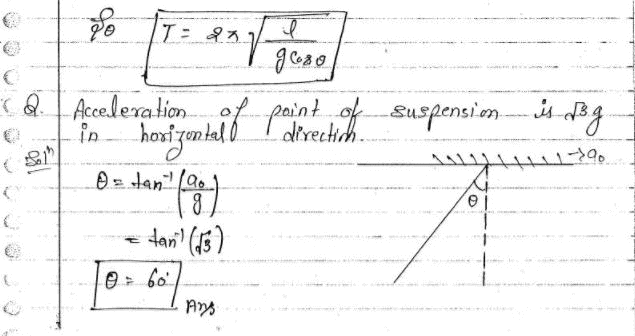 T = 2π √(l / g cos θ)
Q. Acceleration of point of suspension is √3g
in horizontal direction.
Solⁿ
→ a₀
θ = tan⁻¹ (a₀/g)
θ
= tan⁻¹ (√3)
θ = 60°
Ans